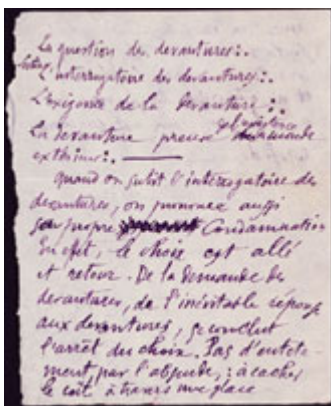 La question des devantures∴
Subir l'interrogatoire des devantures∴
L'exigence de la devanture∴
La devanture preuve de l'existence du monde
extérieur∴
Quand on subit l'interrogatoire des
devantures, on prononce aussi
sa propre Condamnation
En effet, le choix est allé
et retour. De la demande des
devantures, de l'inévitable réponse
aux devantures, se conclut
l'arrêt du choix. Pas d'entête-
ment par l'absurde, : à cacher
le coït à travers une glace